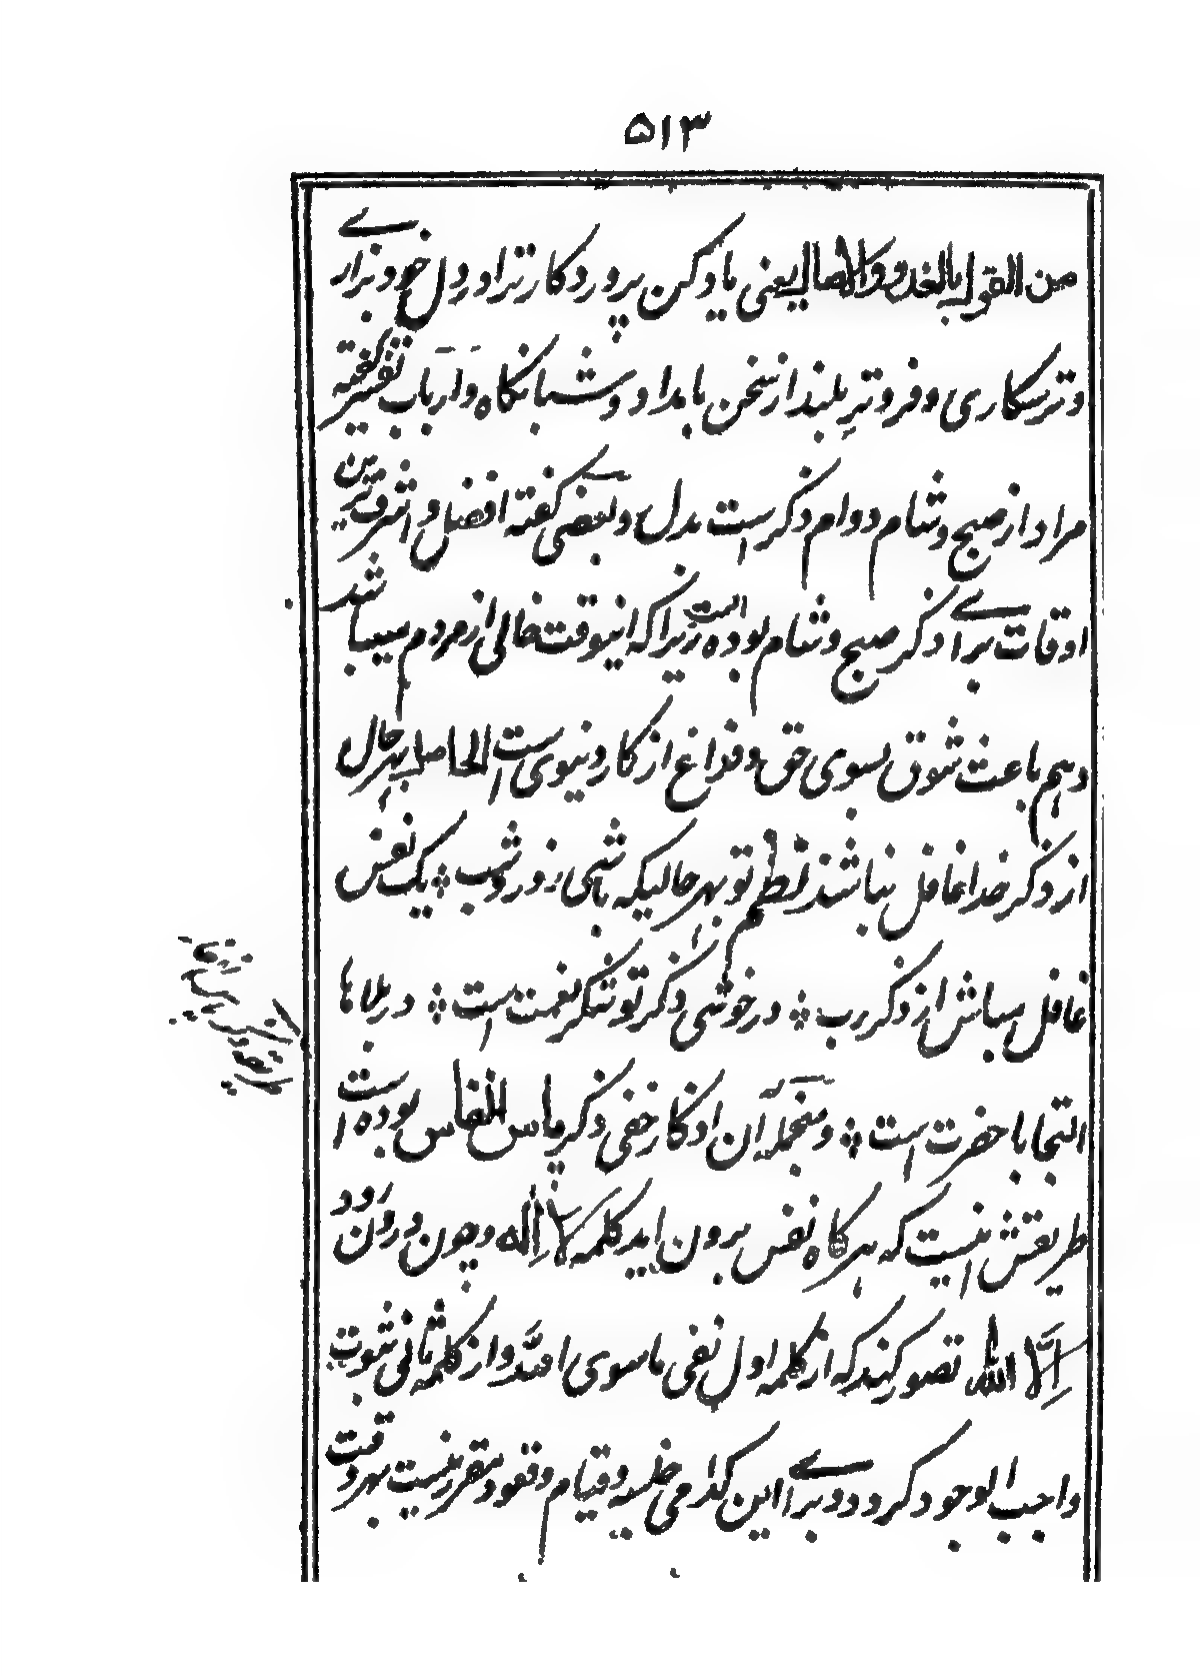 ۵۱۳
من القول بالغدو والاصال یعنی یاد کن پروردگار ترا در دل خود بزاری
و ترسکاری و فروتر بلند از سخن بامداد و شبانگاه و ارباب تفسیر گفته
مراد از صبح و شام دوام ذکر است بدل و بعضی گفته افضل و اشرفترین
اوقات برای ذکر صبح و شام بوده است زیرا که اینوقت خالی از مردم میباشد
وهم باعث شوق بسوی حق و فراغ از کار دنیوی است الحاصل بهر حال
از ذکر خدا غافل نباشد نظم تو بهر حالیکه باشی روز و شب ⁘ یک نفس
غافل مباش از ذکر رب ⁘ در خوشی ذکر تو شکر نعمت است ⁘ در بلاها
التجا با حضرت است ⁘ و منجمله آن اذکار خفی ذکر پاس انفاس بوده است
طریقش اینست که هرگاه نفس برون اید کلمه لا اله و چون درون رود
الا الله تصور کند که از کلمه اول نفی ماسوی الله و از کلمه ثانی ثبوت
واجب الوجود گردد و برای این کدامی جلسه و قیام و قعود مقرر نیست بهر وقت